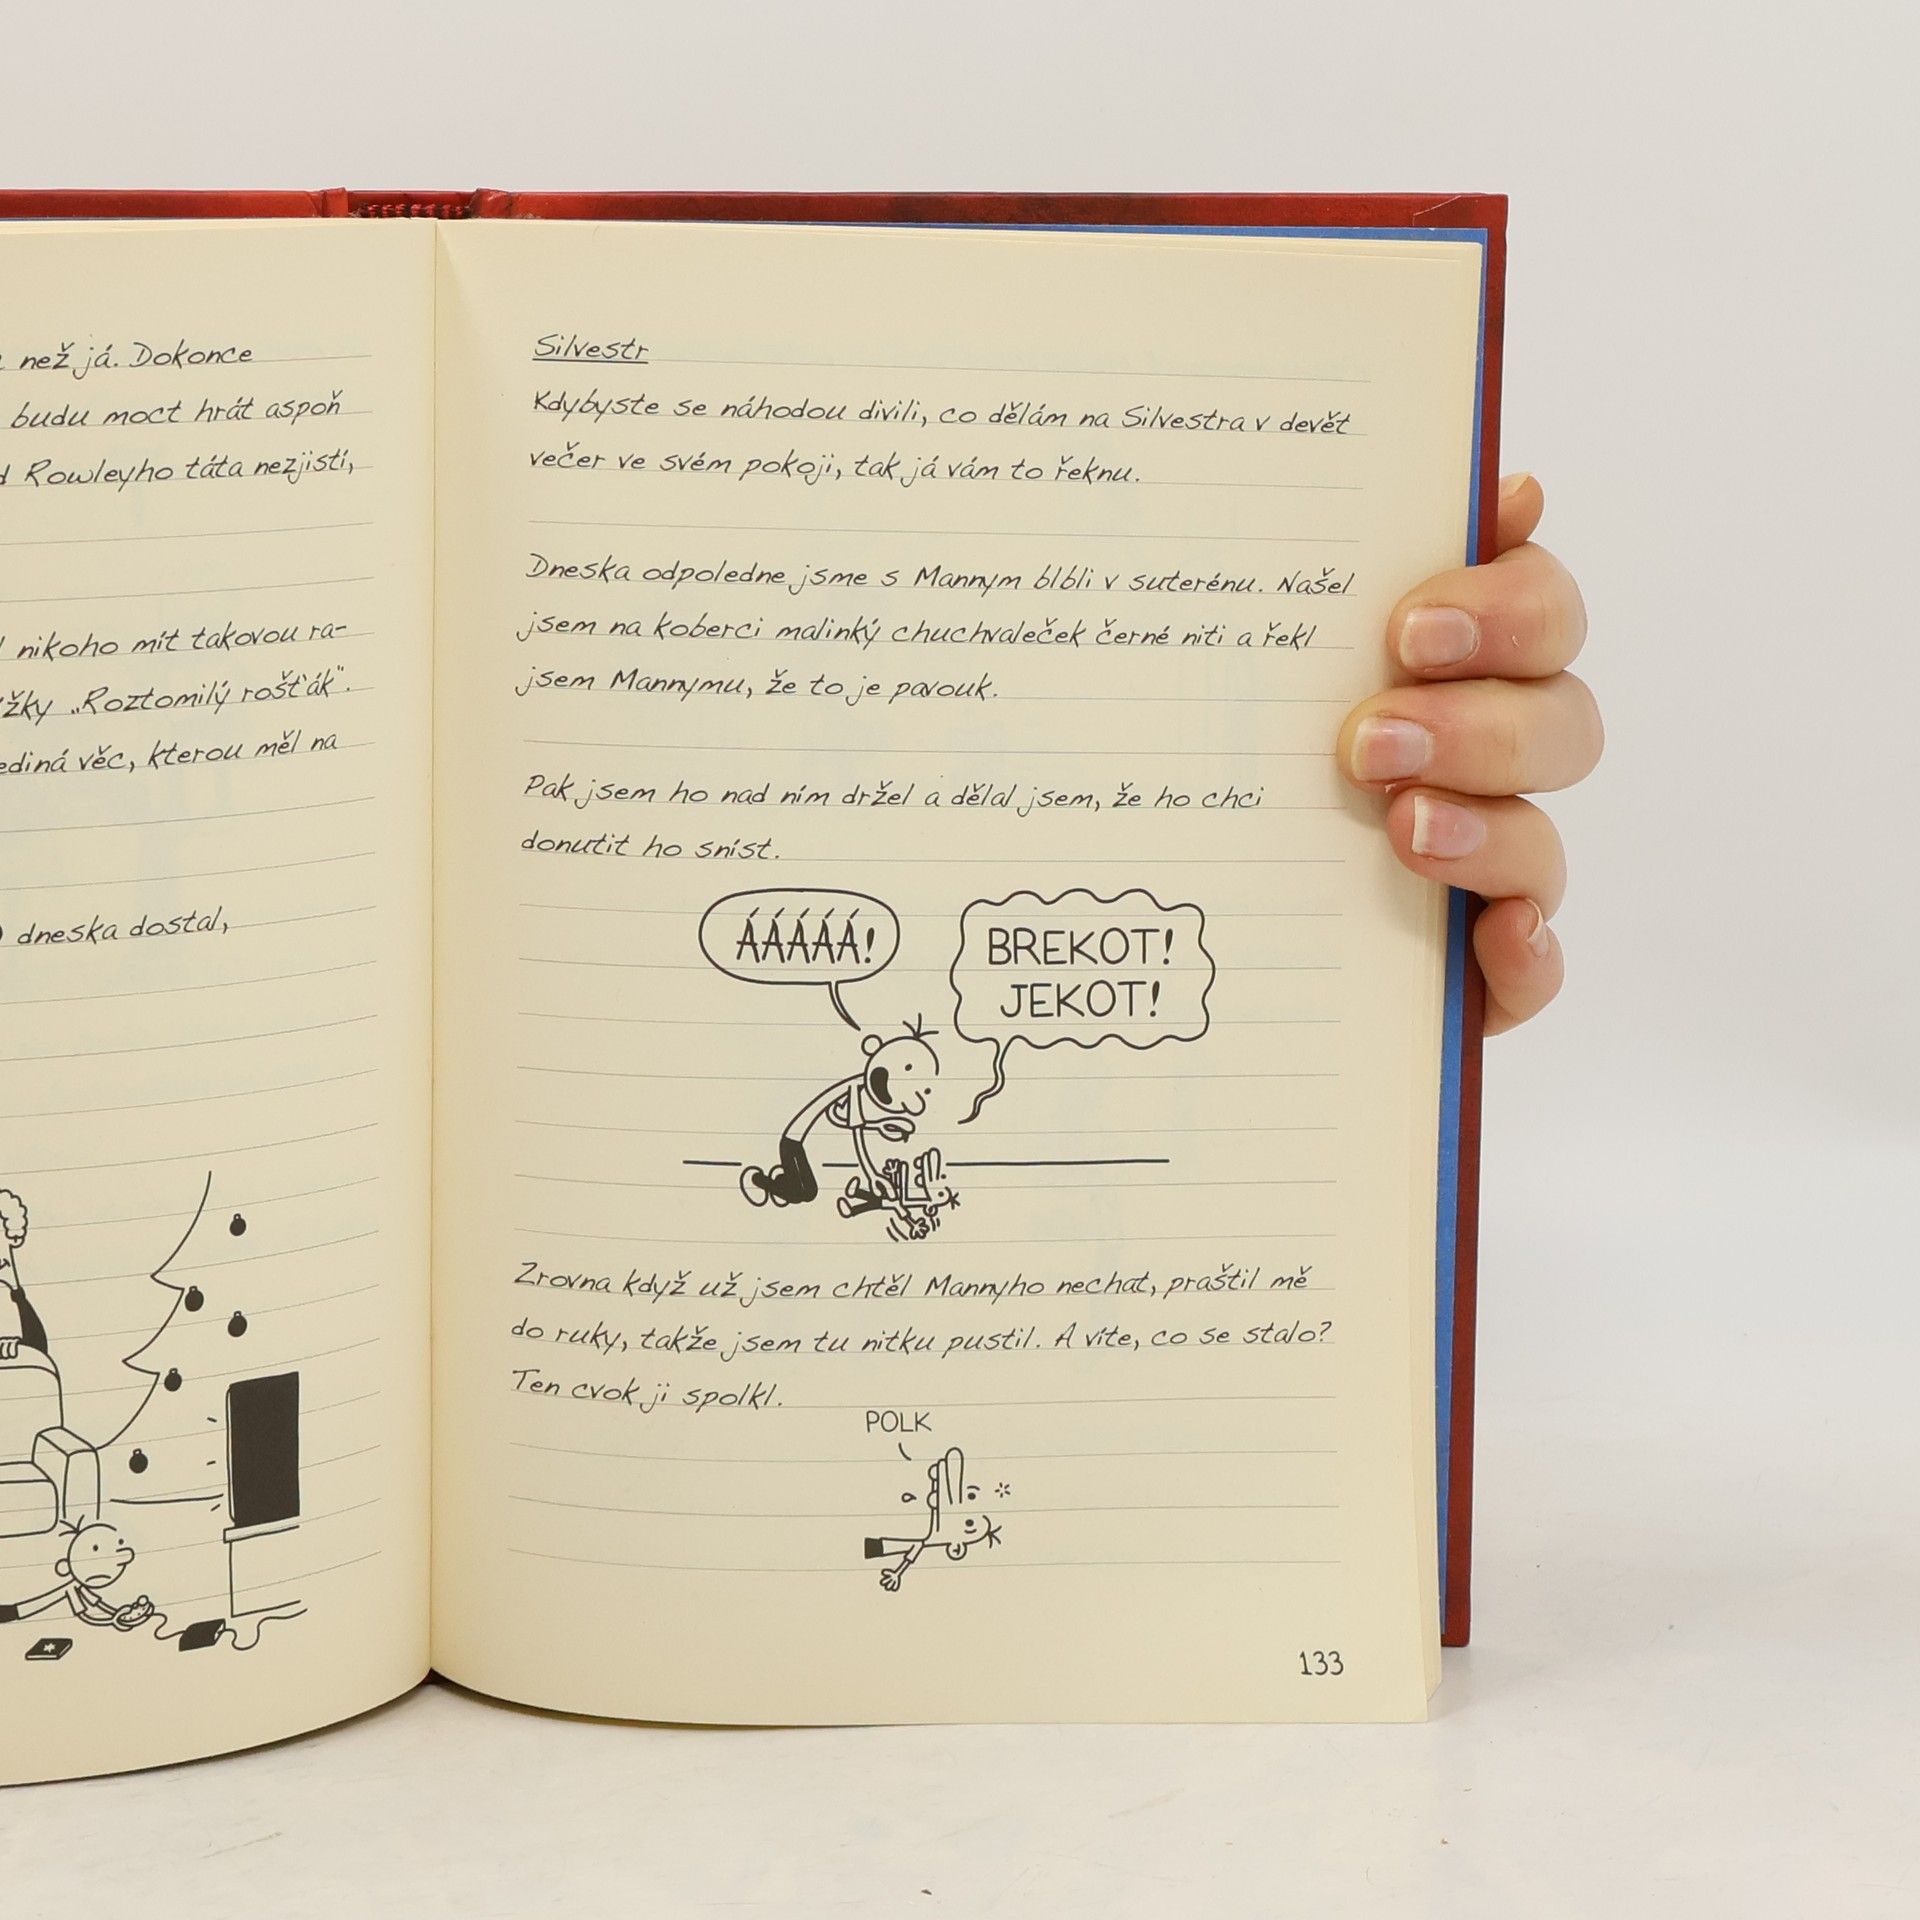 než já. Dokonce
budu moct hrát aspoň
Rowleyho táta nezjistí,
nikoho mít takovou ra-
„Roztomilý rošťák".
věc, kterou měl na
dneska dostal,
Silvestr
Kdybyste se náhodou divili, co dělám na Silvestra v devět
večer ve svém pokoji, tak já vám to řeknu.
Dneska odpoledne jsme s Mannym blbli v suterénu. Našel
jsem na koberci malinký chuchvaleček černé niti a řekl
jsem Mannymu, že to je pavouk.
Pak jsem ho nad ním držel a dělal jsem, že ho chci
donutit ho sníst.
ÁÁÁÁÁ!
BREKOT!
JEKOT!
Zrovna když už jsem chtěl Mannyho nechat, praštil mě
do ruky, takže jsem tu nitku pustil. A víte, co se stalo?
Ten cvok ji spolkl.
POLK
133